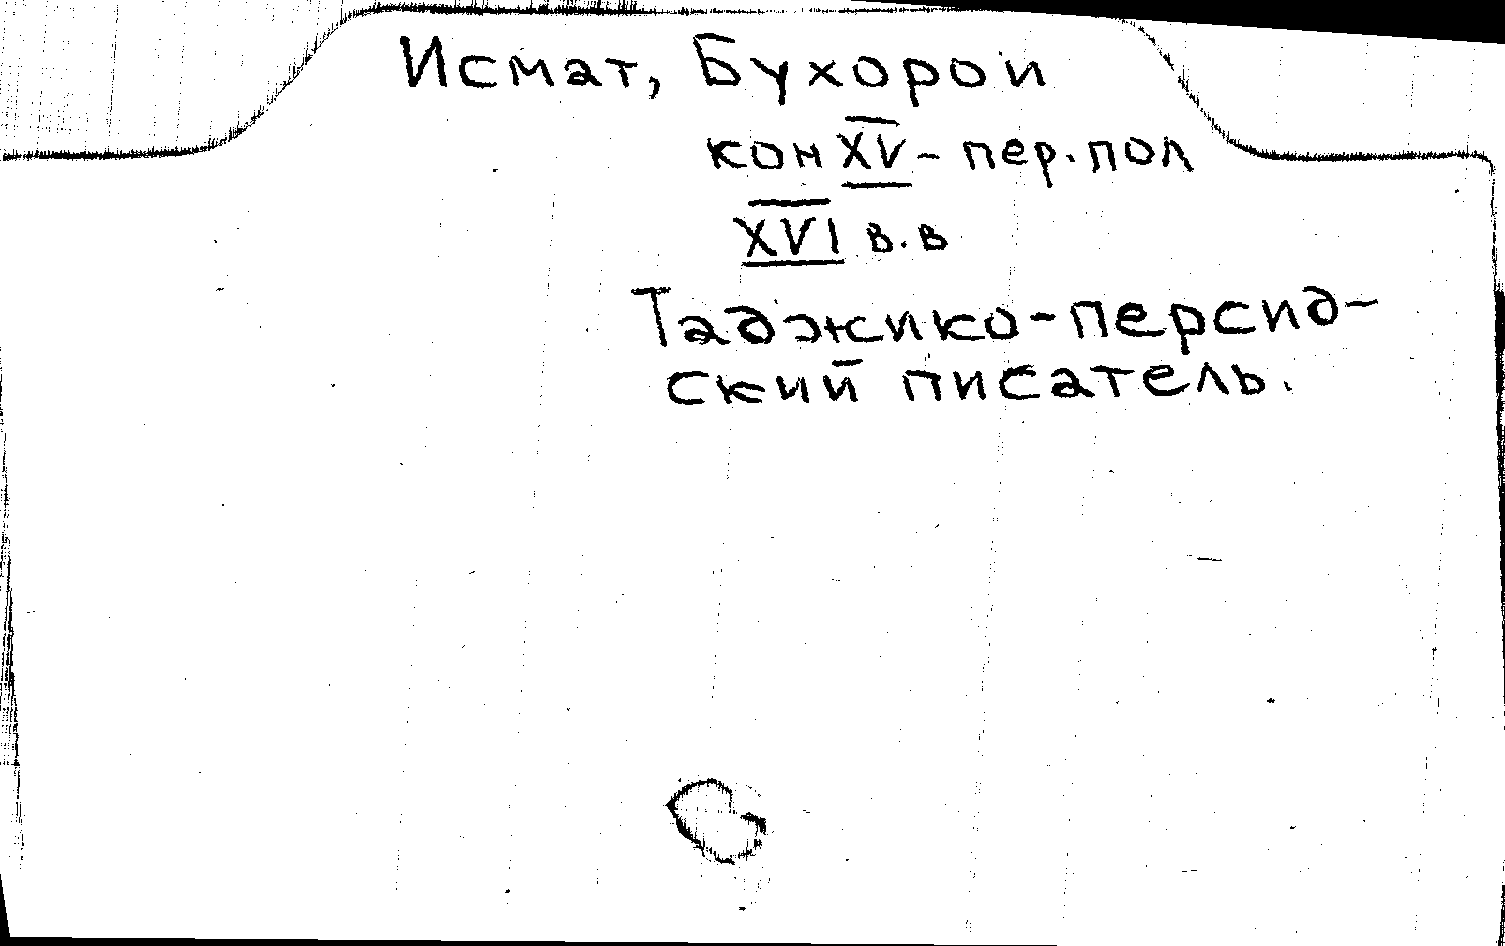 Исмат, Бухорои
кон XV - пер. пол
XVI в.в
Таджико-персид-
ский писатель.